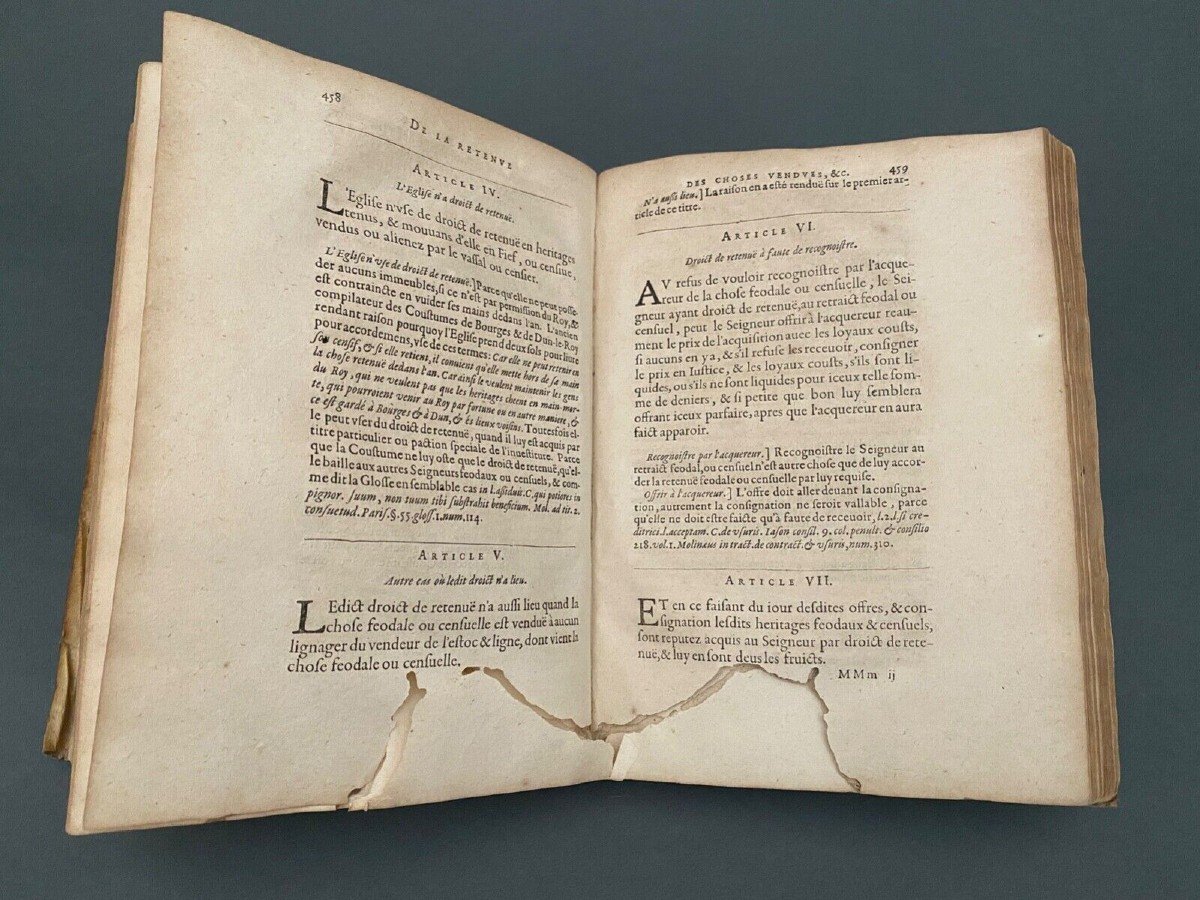 458
DE LA RETENVE
ARTICLE IV.
L'Eglise n'a droict de retenuë.
L'Eglise n'vse de droict de retenuë en heritages
tenus, & mouuans d'elle en Fief, ou censiue,
vendus ou alienez par le vassal ou censier.
L'Eglise n'vse de droict de retenuë.] Parce qu'elle ne peut posse-
der aucuns immeubles, si ce n'est par permission du Roy, &
est contraincte en vuider ses mains dedans l'an. L'ancien
compilateur des Coustumes de Bourges & de Dun-le-Roy
rendant raison pourquoy l'Eglise prend deux sols pour liure
pour accordemens, vse de ces termes: Car elle ne peut retenir en
son censif, & si elle retient, il conuient qu'elle mette hors de sa main
la chose retenuë dedans l'an. Car ainsi le veulent maintenir les gens
du Roy, qui ne veulent pas que les heritages cheent en main-mor-
te, qui pourroient venir au Roy par fortune ou en autre maniere, &
ce est gardé à Bourges & à Dun, & és lieux voisins. Toutesfois el-
le peut vser du droict de retenuë, quand il luy est acquis par
titre particulier ou paction speciale de l'inuestiture. Parce
que la Coustume ne luy oste que le droict de retenuë, qu'el-
le baille aux autres Seigneurs feodaux ou censuels, & com-
me dit la Glosse en semblable cas in L. assiduis. C. qui potiores in
pignor. suum, non tuum tibi substrahit beneficium. Mol. ad tit. 2.
consuetud. Paris. §. 55. gloss. 1. num. 114.
ARTICLE V.
Autre cas où ledit droict n'a lieu.
LEdict droict de retenuë n'a aussi lieu quand la
chose feodale ou censuelle est venduë à aucun
lignager du vendeur de l'estoc & ligne, dont vient la
chose feodale ou censuelle.
DES CHOSES VENDVES, &c. 459
N'a aussi lieu.] La raison en a esté renduë sur le premier ar-
ticle de ce titre.
ARTICLE VI.
Droict de retenuë à faute de recognoistre.
AV refus de vouloir recognoistre par l'acque-
reur de la chose feodale ou censuelle, le Sei-
gneur ayant droict de retenuë, au retraict feodal ou
censuel, peut le Seigneur offrir à l'acquereur reau-
ment le prix de l'acquisition auec les loyaux cousts,
si aucuns en y a, & s'il refuse les receuoir, consigner
le prix en Iustice, & les loyaux cousts, s'ils sont li-
quides, ou s'ils ne sont liquides pour iceux telle som-
me de deniers, & si petite que bon luy semblera
offrant iceux parfaire, apres que l'acquereur en aura
faict apparoir.
Recognoistre par l'acquereur.] Recognoistre le Seigneur au
retraict feodal, ou censuel n'est autre chose que de luy accor-
der la retenuë feodale ou censuelle par luy requise.
Offrir à l'acquereur.] L'offre doit aller deuant la consigna-
tion, autrement la consignation ne seroit vallable, parce
qu'elle ne doit estre faicte qu'à faute de receuoir, l. 2. l. si cre-
ditrici. l. acceptam. C. de vsuris. Iason consil. 9. col. penult. & consilio
218. vol. 1. Molinæus in tract. de contract. & vsuris, num. 310.
ARTICLE VII.
ET en ce faisant du iour desdites offres, & con-
signation lesdits heritages feodaux & censuels,
sont reputez acquis au Seigneur par droict de rete-
nuë, & luy en sont deus les fruicts.
MMm ij